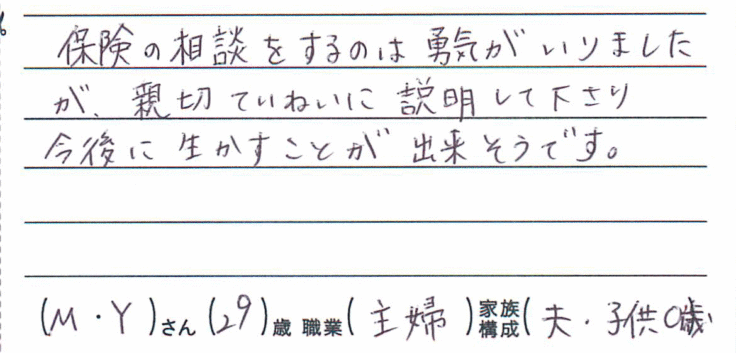 保険の相談をするのは勇気がいりました
が、親切ていねいに説明して下さり
今後に生かすことが出来そうです。
(M・Y)さん(29)歳 職業(主婦)家族構成(夫・子供0歳